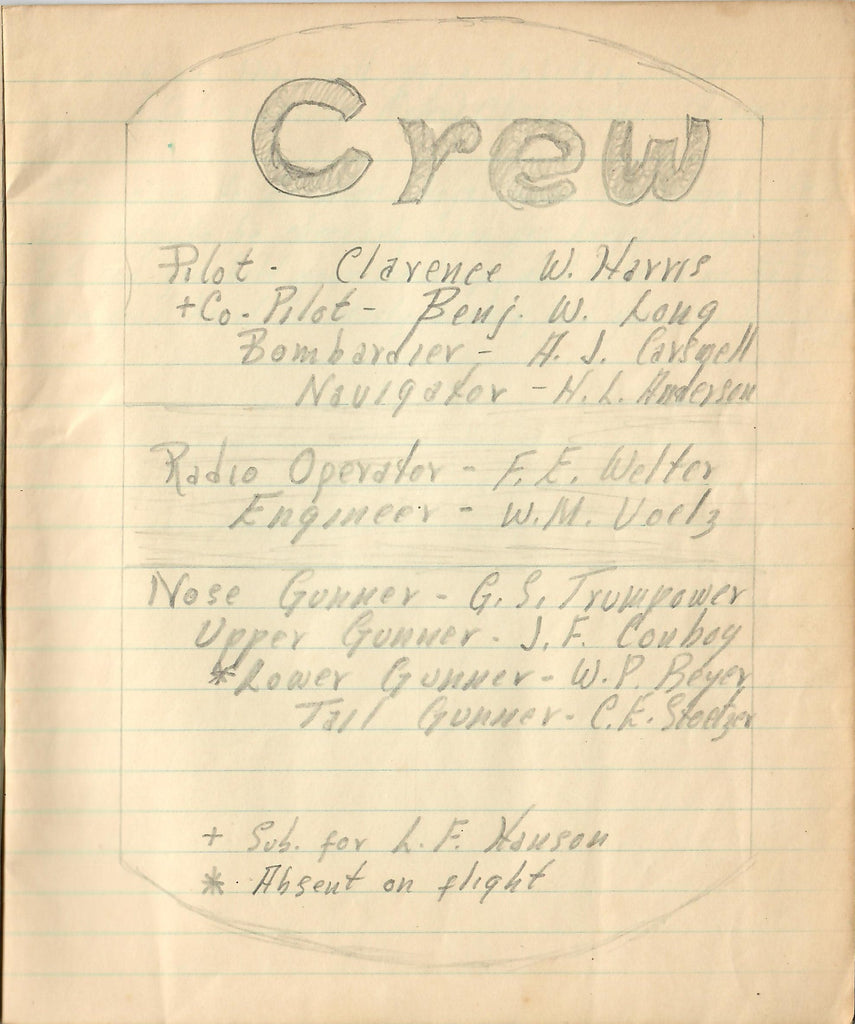 Crew
Pilot - Clarence W. Harris
+Co-Pilot - Benj. W. Long
Bombardier - A. J. Carswell
Navigator - H. L. Anderson
Radio Operator - F. E. Welter
Engineer - W. M. Voelz
Nose Gunner - G. S. Trumpower
Upper Gunner - J. F. Conboy
*Lower Gunner - W. P. Beyer
Tail Gunner - C. E.
+ Sub. for L. F. Hanson
* Absent on flight